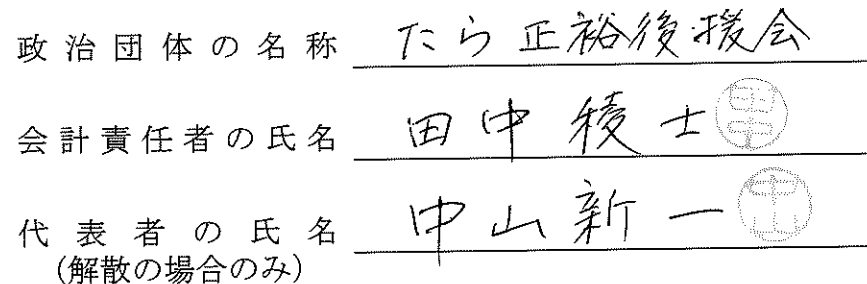 政治団体の名称 たら正裕後援会
会計責任者の氏名 田中稜士 田中
代表者の氏名 中山新一 中山
(解散の場合のみ)